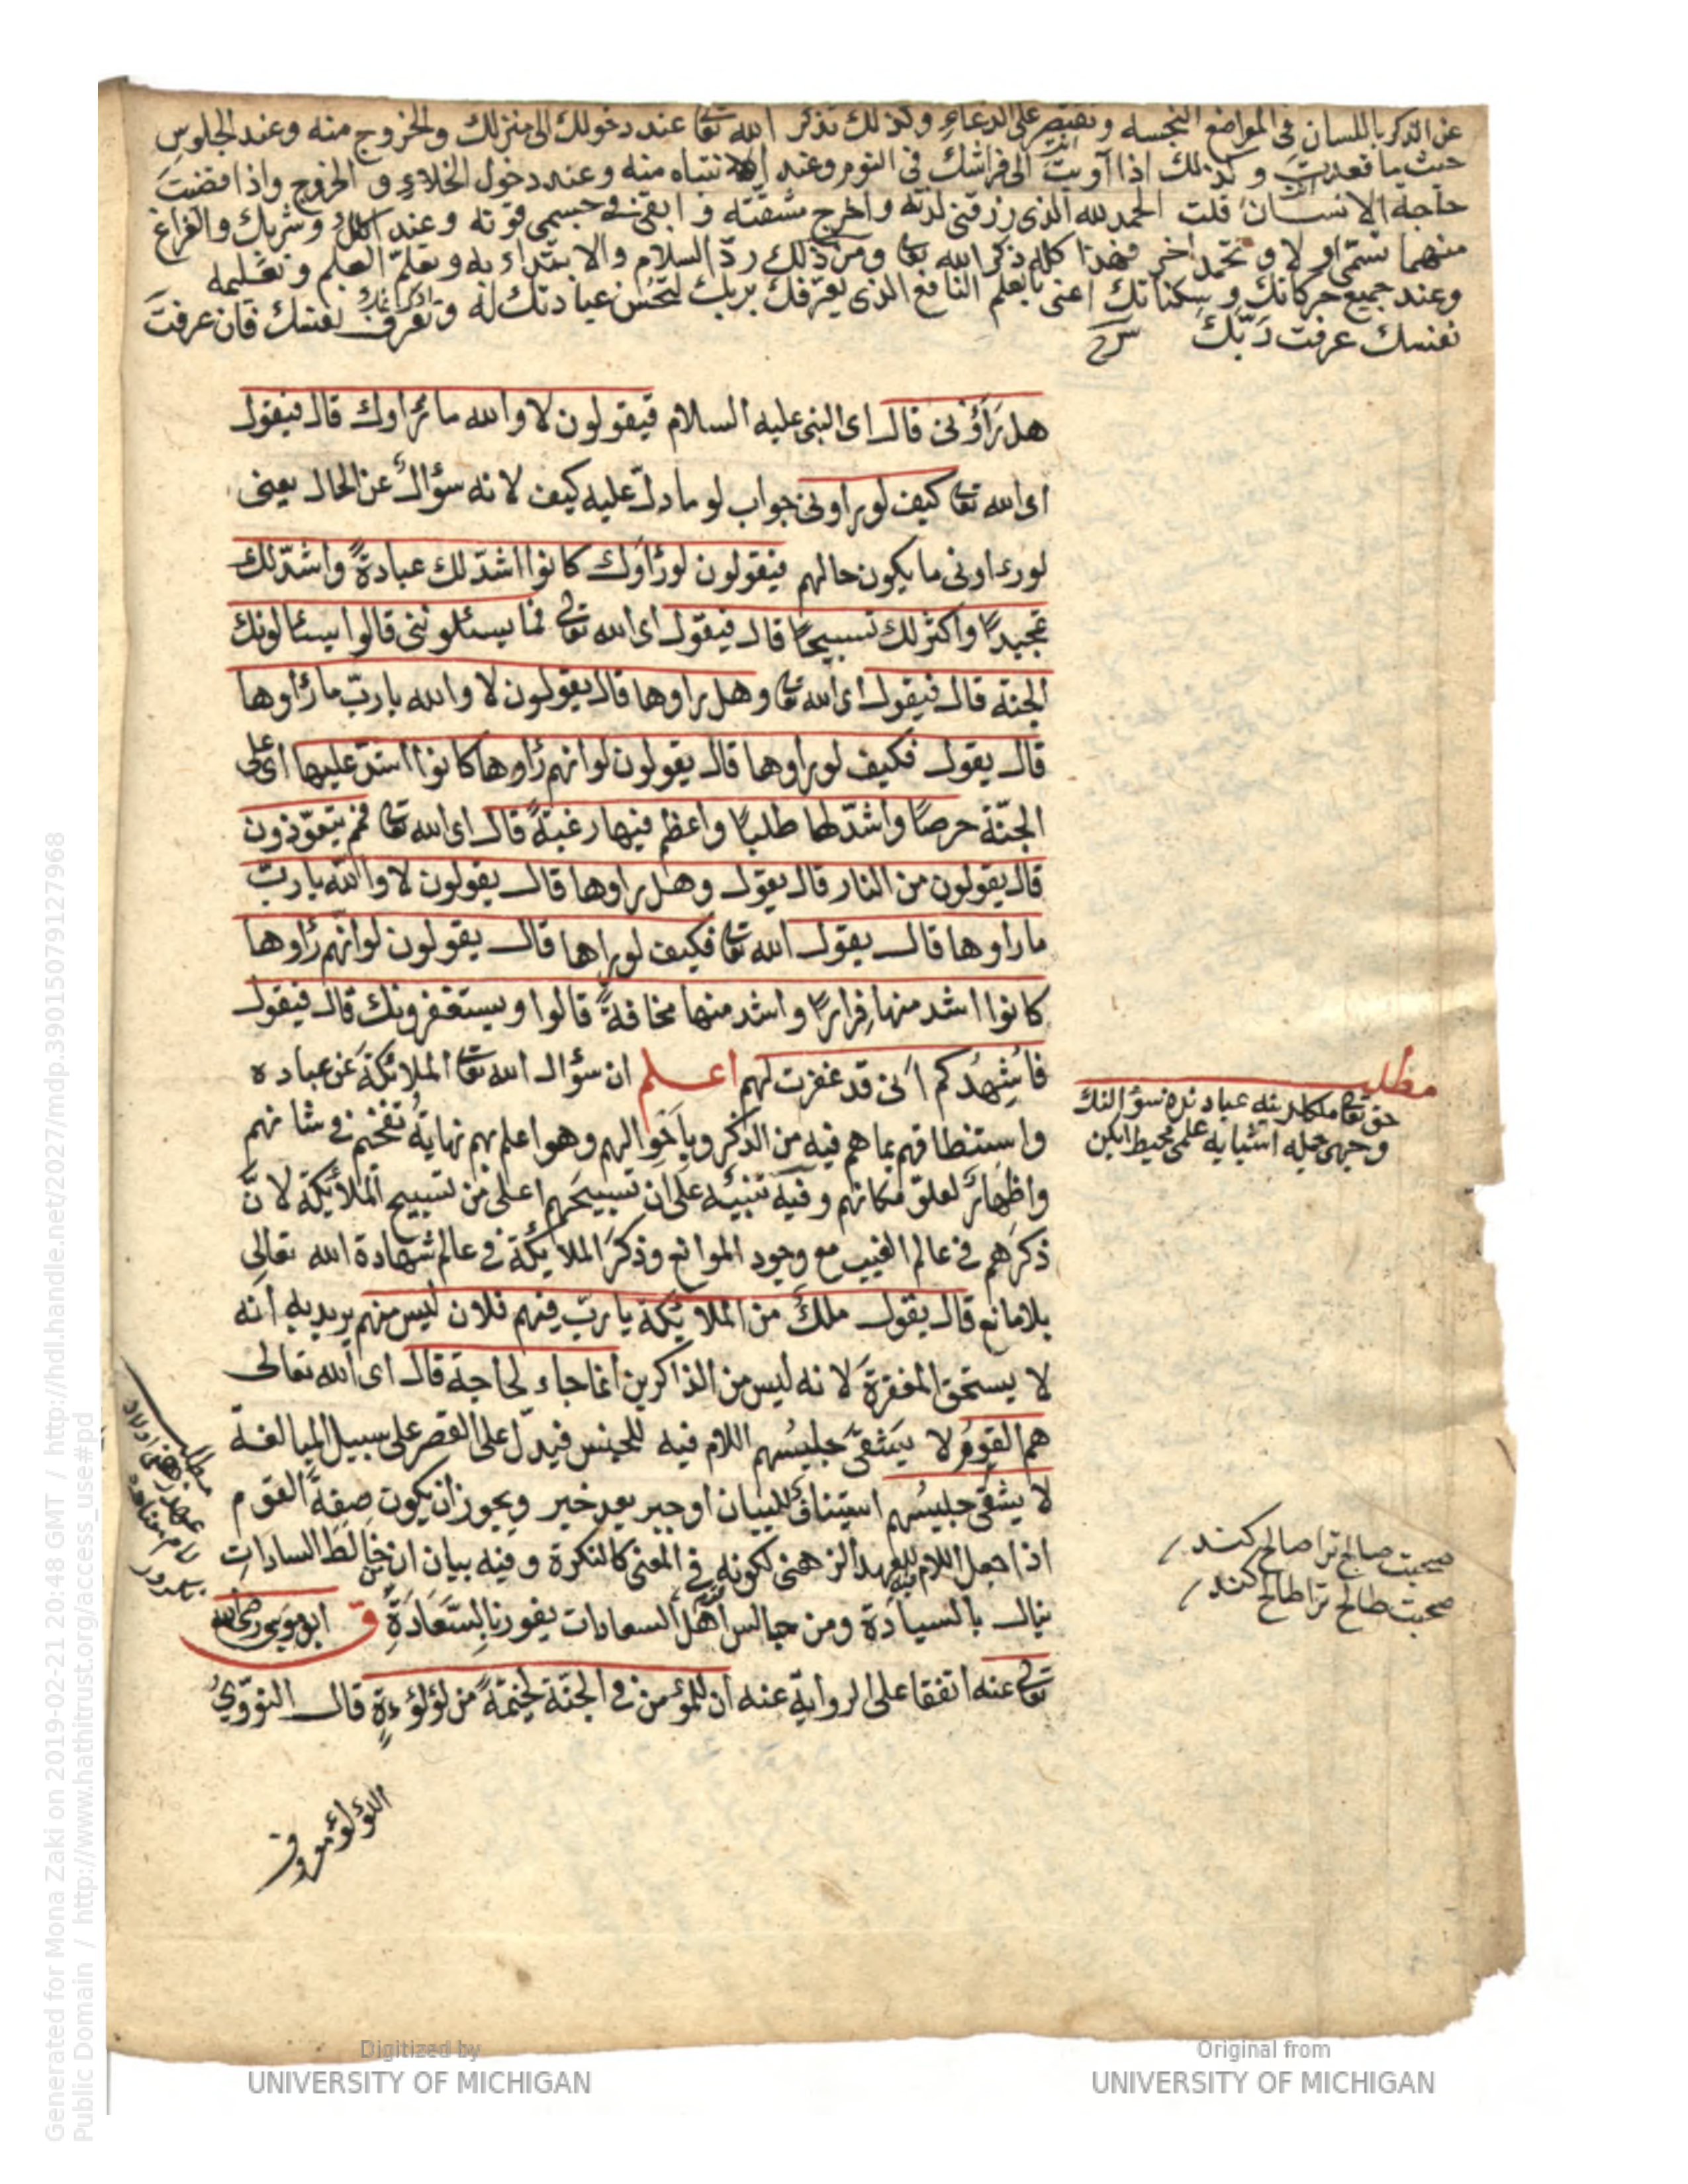 عن الذكر باللسان فى المواضع النجسه وتقتصر على الدعاء وكذلك تذكر الله تعا عند دخولك الى منزلك والخروج منه وعند الجلوس
حيث ما قعدت وكذلك اذا آويت الى فراشك فى النوم وعند الانتباه منه وعند دخول الخلاء و الخروج واذا قضيت
حاجة الانسان قلت الحمد لله الذى رزقنى لذته واخرج مشقته و ابقى فى جسمى قوته وعند اكلك وشربك والفراغ
منهما تسمى اولا و تحمد اخر فهذا كله ذكر الله تعا ومن ذلك ردّ السلام والابتداء به وتعلم العلم وتعليمه
وعند جميع حركاتك و سكناتك اعنى بالعلم النافع الذى يعرّفك بربك لتحسن عبادتك له وتعرف نفسك فان عرفت
نفسك عرفت رَبّك
هل رَأَوْنى قال اى النبى عليه السلام فيقولون لا والله ما رأوك قال فيقول
اى الله تعا كيف لو راونى جواب لو ما دلّ عليه كيف لانه سؤال عن الحال يعنى
لو رءاونى ما يكون حالهم فيقولون لو رأوك كانوا اشدّ لك عبادةً واشدّ لك
تمجيدًا واكثر لك تسبيحًا قال فيقول اى الله تعا فما يسئلوننى قالوا يسئالونك
الجنة قال فيقول اى الله تعا وهل راوها قال يقولون لا والله يا ربّ ما رأوها
قال يقول فكيف لو راوها قال يقولون لو انهم رأوها كانوا اشدّ عليها اى على
الجنّة حرصًا واشدّ لها طلبًا واعظم فيها رغبةً قال اى الله تعا فمم يتعوّذون
قال يقولون من النار قال يقول وهل راوها قال يقولون لا والله يا ربّ
ما راوها قال يقول الله تعا فكيف لو راها قال يقولون لو انّهم رأوها
كانوا اشد منها فِرارًا واشد منها مخافةً قالوا ويستغفرونك قال فيقول
فاُشْهِدُكم اَنى قد غفرت لهم اعلم ان سؤال الله تعا الملائكة عن عباده
واستنطاقهم بما هم فيه من الذكر وهو اعلم بهم نهاية تفخيم فى شانهم
واظهار لعلوّ مكانهم وفيه تنبيه على ان تسبيحهم اعلى من تسبيح الملائكة لانّ
ذكرهم فى عالم الغيب مع وجود الموانع وذكر الملايكة فى عالم شهادة الله تعالى
بلا مانع قال يقول ملك من الملائكة يا ربّ فيهم فلان ليس منهم يريد به انه
لا يستحق المغفرة لانه ليس من الذاكرين انما جاء لحاجة قال اى الله تعالى
هم القوم لا يَشْقَى جليسُهم اللام فيه للجنس فيدلّ على القصر على سبيل المبالغة
لا يشقى جليسُهم استيناف للبيان او خبر بعد خبر ويجوز ان يكون صِفَةً القوم
اذا جعل اللام للعهد الزهنى لكونه فى المعنى كالنكرة وفيه بيان ان من خالَطَ السادات
ينال بالسيادة ومن جالس اَهْلَ السعادات يفوز بالسَّعَادَةِ ق ابو موسى رضى الله
تعا عنه اتفقا على الرواية عنه ان للمؤمن فى الجنّة لخيمةً من لؤلؤءةٍ قال النووىّ
مطلب
وجهى جمله اشيايه علمى محيط ايكن
صحبت صالح ترا صالح كند
صحبت طالح ترا طالح كند
اللؤلؤ معروف